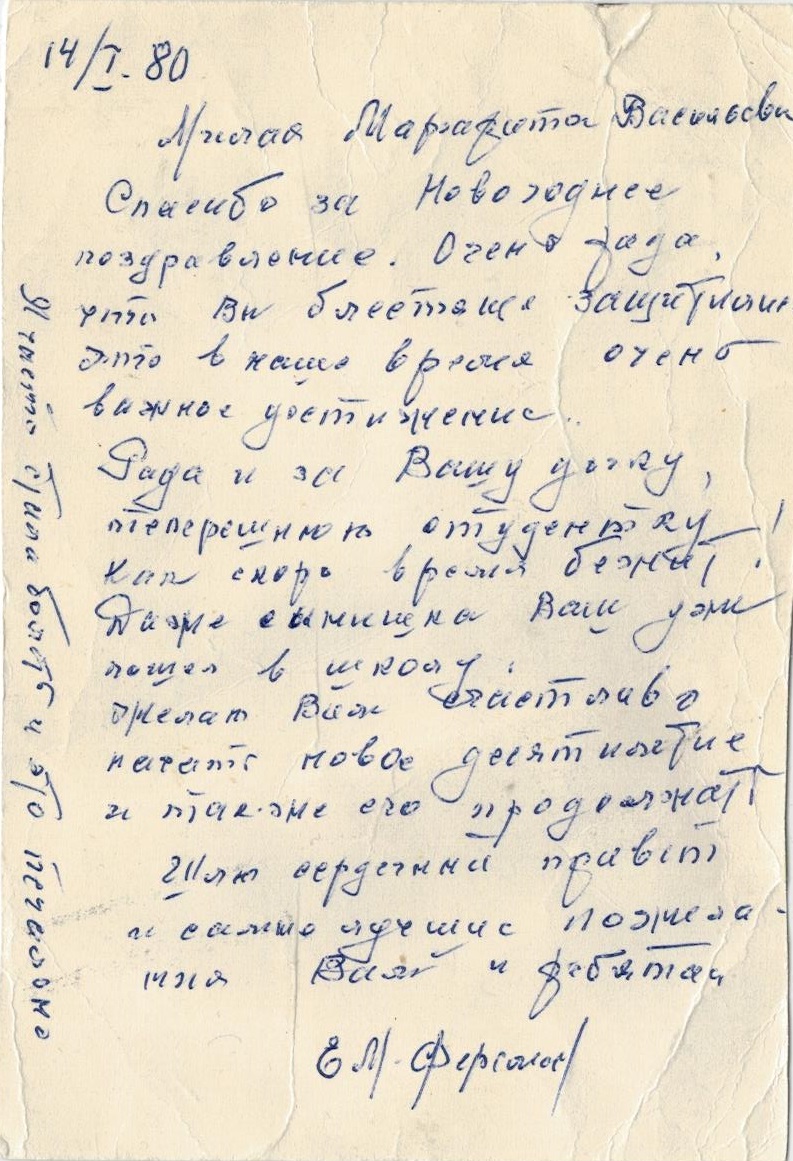 14/I. 80
Милая Маргарита Васильевн
Спасибо за Новогоднее
поздравление. Очень рада,
что Вы блестяще защитили
это в наше время очень
важное достижение..
Рада и за Вашу дочку,
теперешнюю студентку!
Как скоро время бежит!
Даже сынишка Ваш уже
пошел в школу!
Желаю Вам счастливо
начать новое десятилетие
и так-же его продолжать
Шлю сердечный привет
и самые лучшие пожела-
ния Вам и ребятам
Е М. Ферсман
Я часто стала болеть и это печально